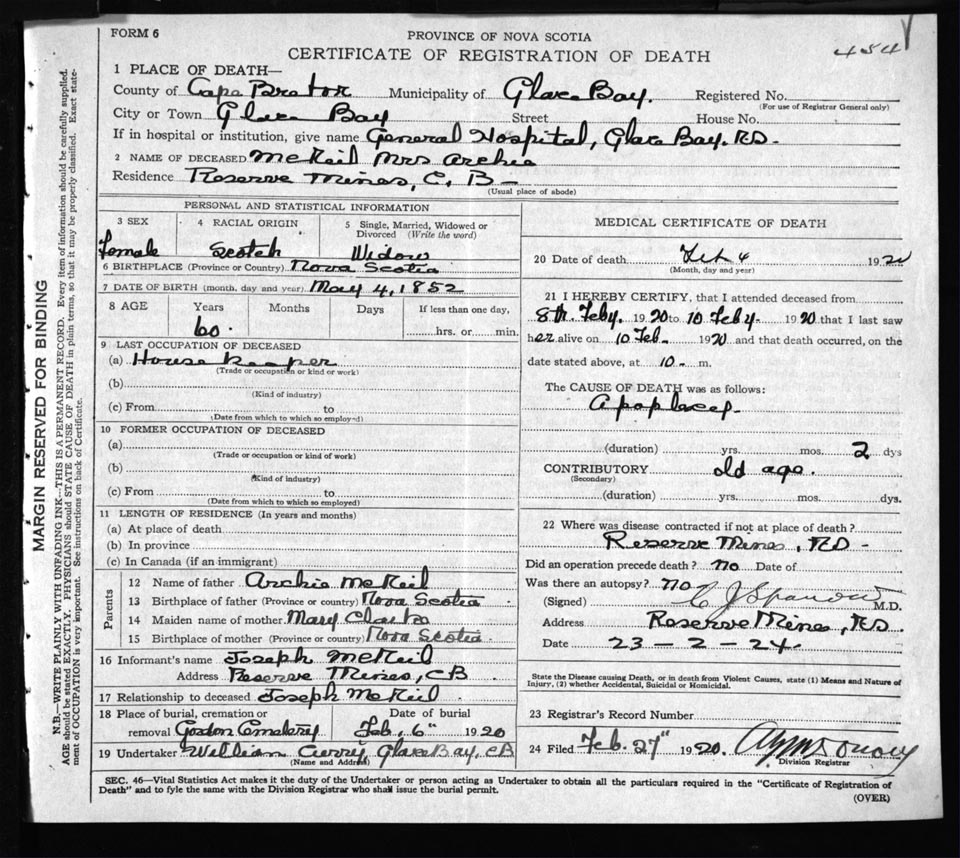 FORM 6
PROVINCE OF NOVA SCOTIA
454
CERTIFICATE OF REGISTRATION OF DEATH
1 PLACE OF DEATH—
County of Cape Breton Municipality of Glace Bay. Registered No.
(For use of Registrar General only)
City or Town Glace Bay Street House No.
If in hospital or institution, give name General Hospital, Glace Bay. NS-
2 NAME OF DECEASED McNeil Mrs Archie
Residence Reserve Mines, C. B-
(Usual place of abode)
PERSONAL AND STATISTICAL INFORMATION
3 SEX 4 RACIAL ORIGIN 5 Single, Married, Widowed or
Divorced (Write the word)
Female Scotch Widow
6 BIRTHPLACE (Province or Country) Nova Scotia
7 DATE OF BIRTH (month, day and year) May 4, 1852
8 AGE Years Months Days If less than one day,
60. hrs. or min.
9 LAST OCCUPATION OF DECEASED
(a) House Keeper
(Trade or occupation or kind or work)
(b)
(Kind of industry)
(c) From to
(Date from which to which so employed)
10 FORMER OCCUPATION OF DECEASED
(a)
(Trade or occupation or kind of work)
(b)
(Kind of industry)
(c) From to
(Date from which to which so employed)
11 LENGTH OF RESIDENCE (In years and months)
(a) At place of death
(b) In province
(c) In Canada (if an immigrant)
Parents
12 Name of father Archie McNeil
13 Birthplace of father (Province or country) Nova Scotia
14 Maiden name of mother Mary
15 Birthplace of mother (Province or country) Nova Scotia
16 Informant's name Joseph McNeil
Address Reserve Mines, CB
17 Relationship to deceased Joseph McNeil
18 Place of burial, cremation or Date of burial
removal Gordon Cemetery Feb, 6" 1920
19 Undertaker William Curry, Glace Bay, CB
(Name and Address)
MEDICAL CERTIFICATE OF DEATH
20 Date of death Feb 4 192
(Month, day and year)
21 I HEREBY CERTIFY, that I attended deceased from
8th Feby. 1920 to 10 Feby- 1920 that I last saw
her alive on 10 Feb- 1920 and that death occurred, on the
date stated above, at 10- m.
The CAUSE OF DEATH was as follows:
Apoplexy.
(duration) yrs. mos. 2 dys
CONTRIBUTORY old age.
(Secondary)
(duration) yrs. mos. dys.
22 Where was disease contracted if not at place of death?
Reserve Mines, NS-
Did an operation precede death? no Date of
Was there an autopsy? no
(Signed) M.D.
Address Reserve Mines, NS.
Date 23-2-24-
State the Disease causing Death, or in death from Violent Causes, state (1) Means and Nature of
Injury, (2) whether Accidental, Suicidal or Homicidal.
23 Registrar's Record Number
24 Filed Feb. 27" 1920.
Division Registrar
SEC. 46—Vital Statistics Act makes it the duty of the Undertaker or person acting as Undertaker to obtain all the particulars required in the "Certificate of Registration of
Death" and to fyle the same with the Division Registrar who shall issue the burial permit.
(OVER)
MARGIN RESERVED FOR BINDING
N.B.—WRITE PLAINLY WITH UNFADING INK—THIS IS A PERMANENT RECORD. Every item of information should be carefully supplied.
AGE should be stated EXACTLY. PHYSICIANS should STATE CAUSE OF DEATH in plain terms, so that it may be properly classified. Exact state-
ment of OCCUPATION is very important. See instructions on back of Certificate.